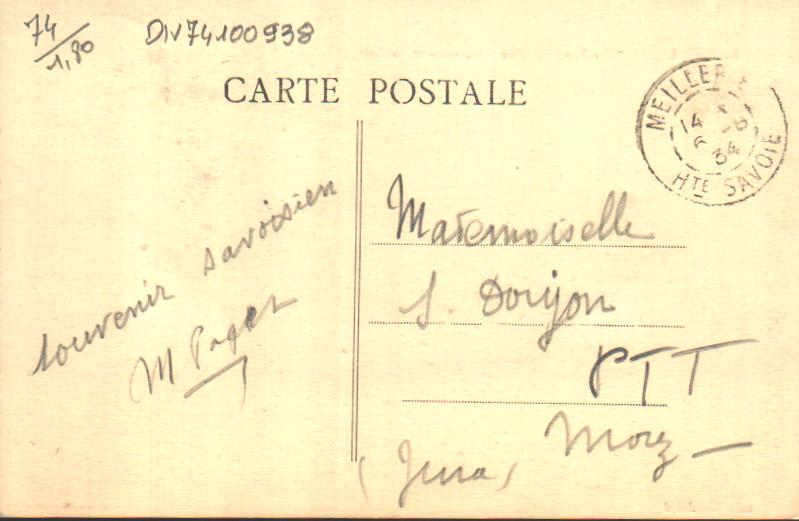 74
1,80
DIV74100938
CARTE POSTALE
MEILLER
14
6
34
HTE SAVOIE
souvenir savoisien
M Paget
Mademoiselle
S.
PTT
Morez
(Jura)